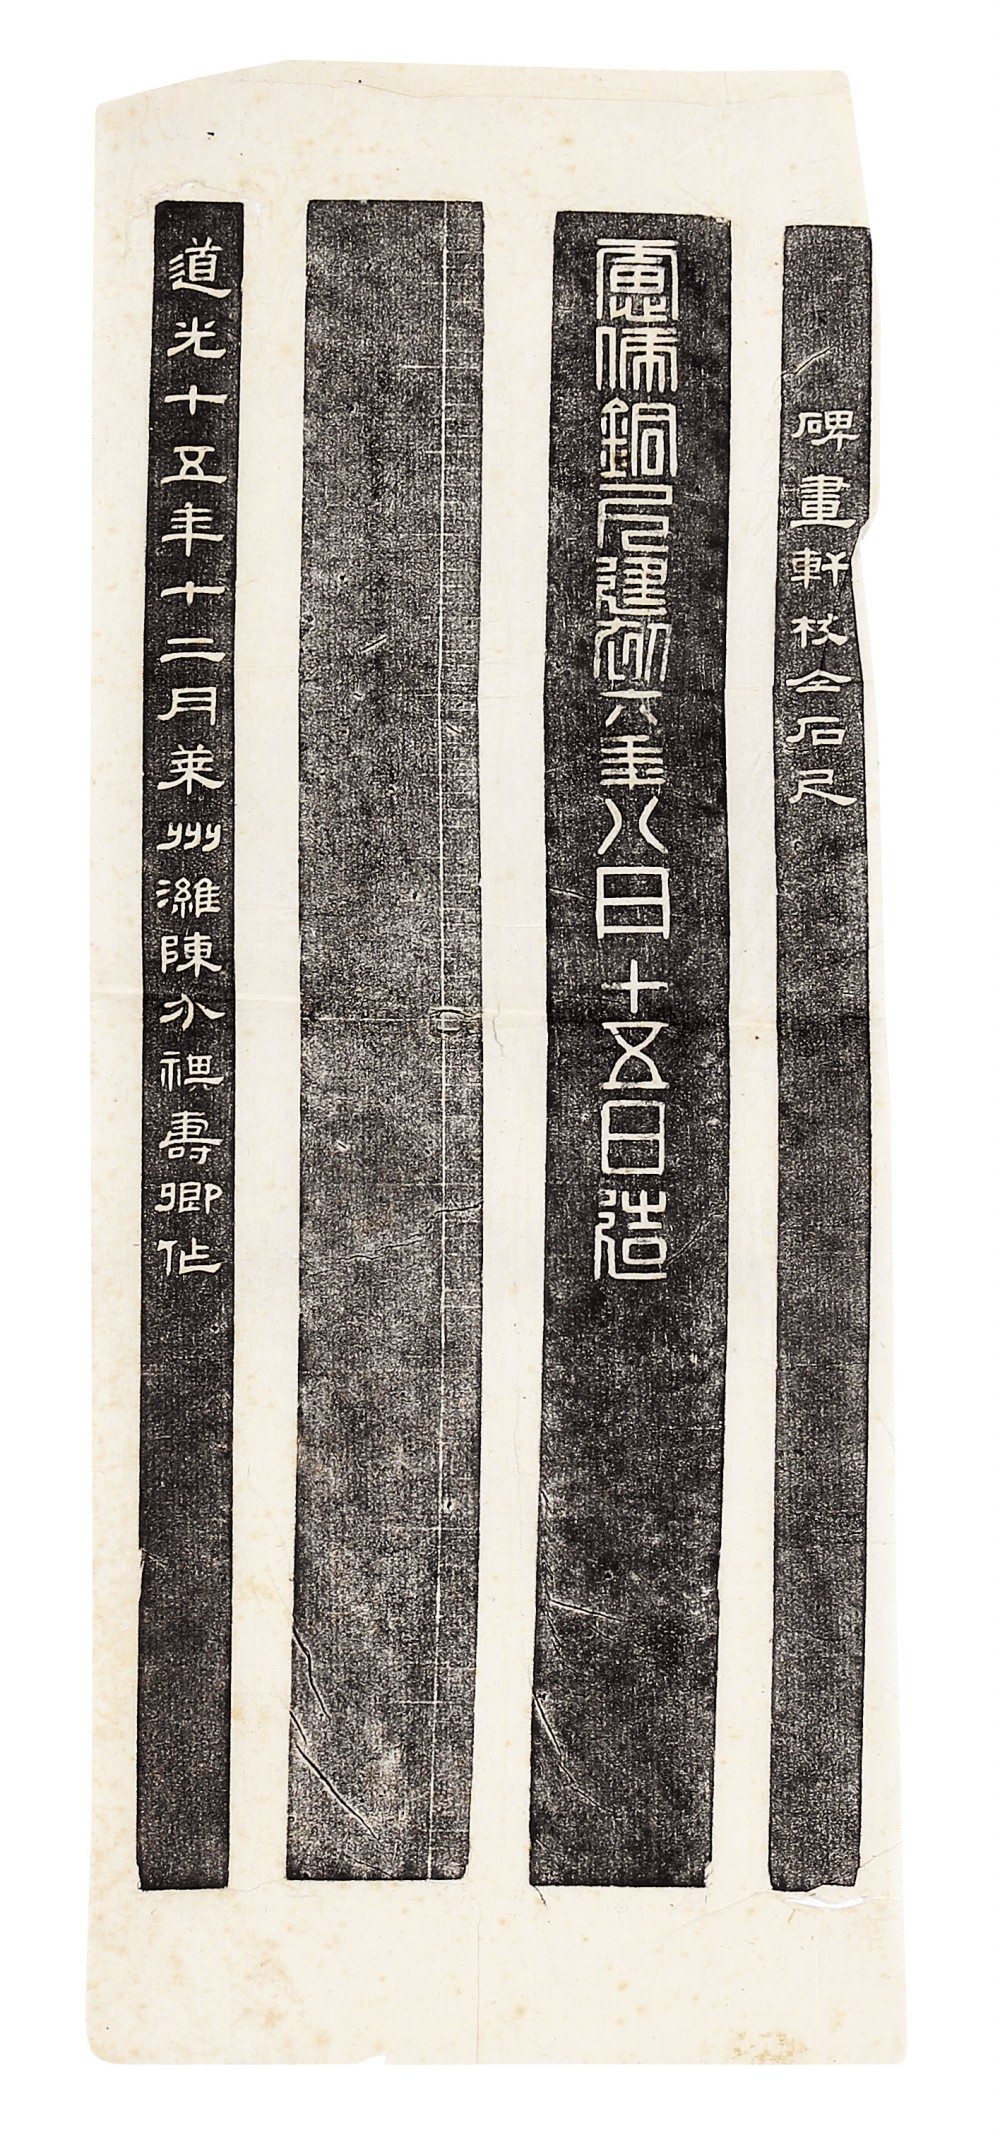 碑畫軒石尺
慮俿銅尺建初六年八月十五日造
道光十五年十二月萊州濰陳介祺壽卿作